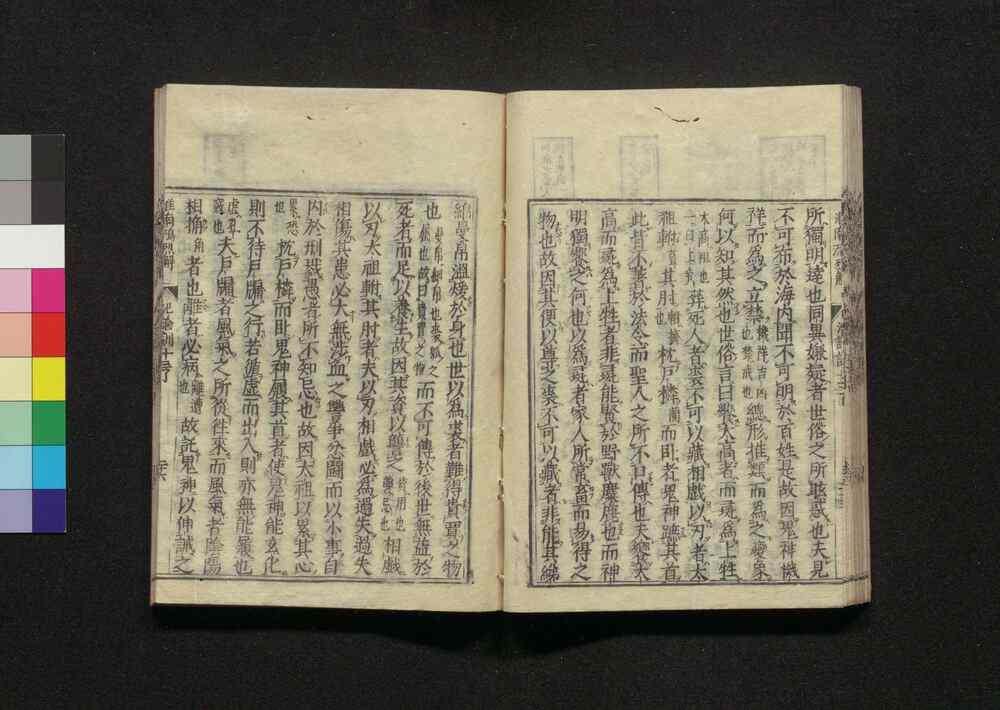 所獨明達也同異嫌疑者世俗之所眩惑也夫見
不可布於海内聞不可明於百姓是故因鬼神禨
祥而為之立禁總形推類而為之變象
何以知其然也世俗言曰饗大高者而彘為上牲
葬死人者裘不可以藏相戲以刃者太
祖軵其肘枕戶橉而臥者鬼神蹠其首
此皆不著於法令而聖人之所不口傳也夫饗大
高而彘為上牲者非彘能賢於野獸麋鹿也而神
明獨饗之何也以為彘者家人所常畜而易得之
物也故因其便以尊之裘不可以藏者非能具綈
綿曼帛溫煖於身也世以為裘者難得貴賈之物
也而不可傳於後世無益於
死者而足以養生故因其資以讋之相戲
以刃太祖軵其肘者夫以刃相戲必為過失過失
相傷其患必大無涉血之讐爭忿鬪而以小事自
内於刑戮愚者所不知忌也故因太祖以累其心
枕戶橉而臥鬼神履其首者使鬼神能玄化
則不待戶牖之行若循虛而出入則亦無能履也
夫戶牖者風氣之所從往來而風氣者陰陽
相捔者也離者必病故託鬼神以伸誡之